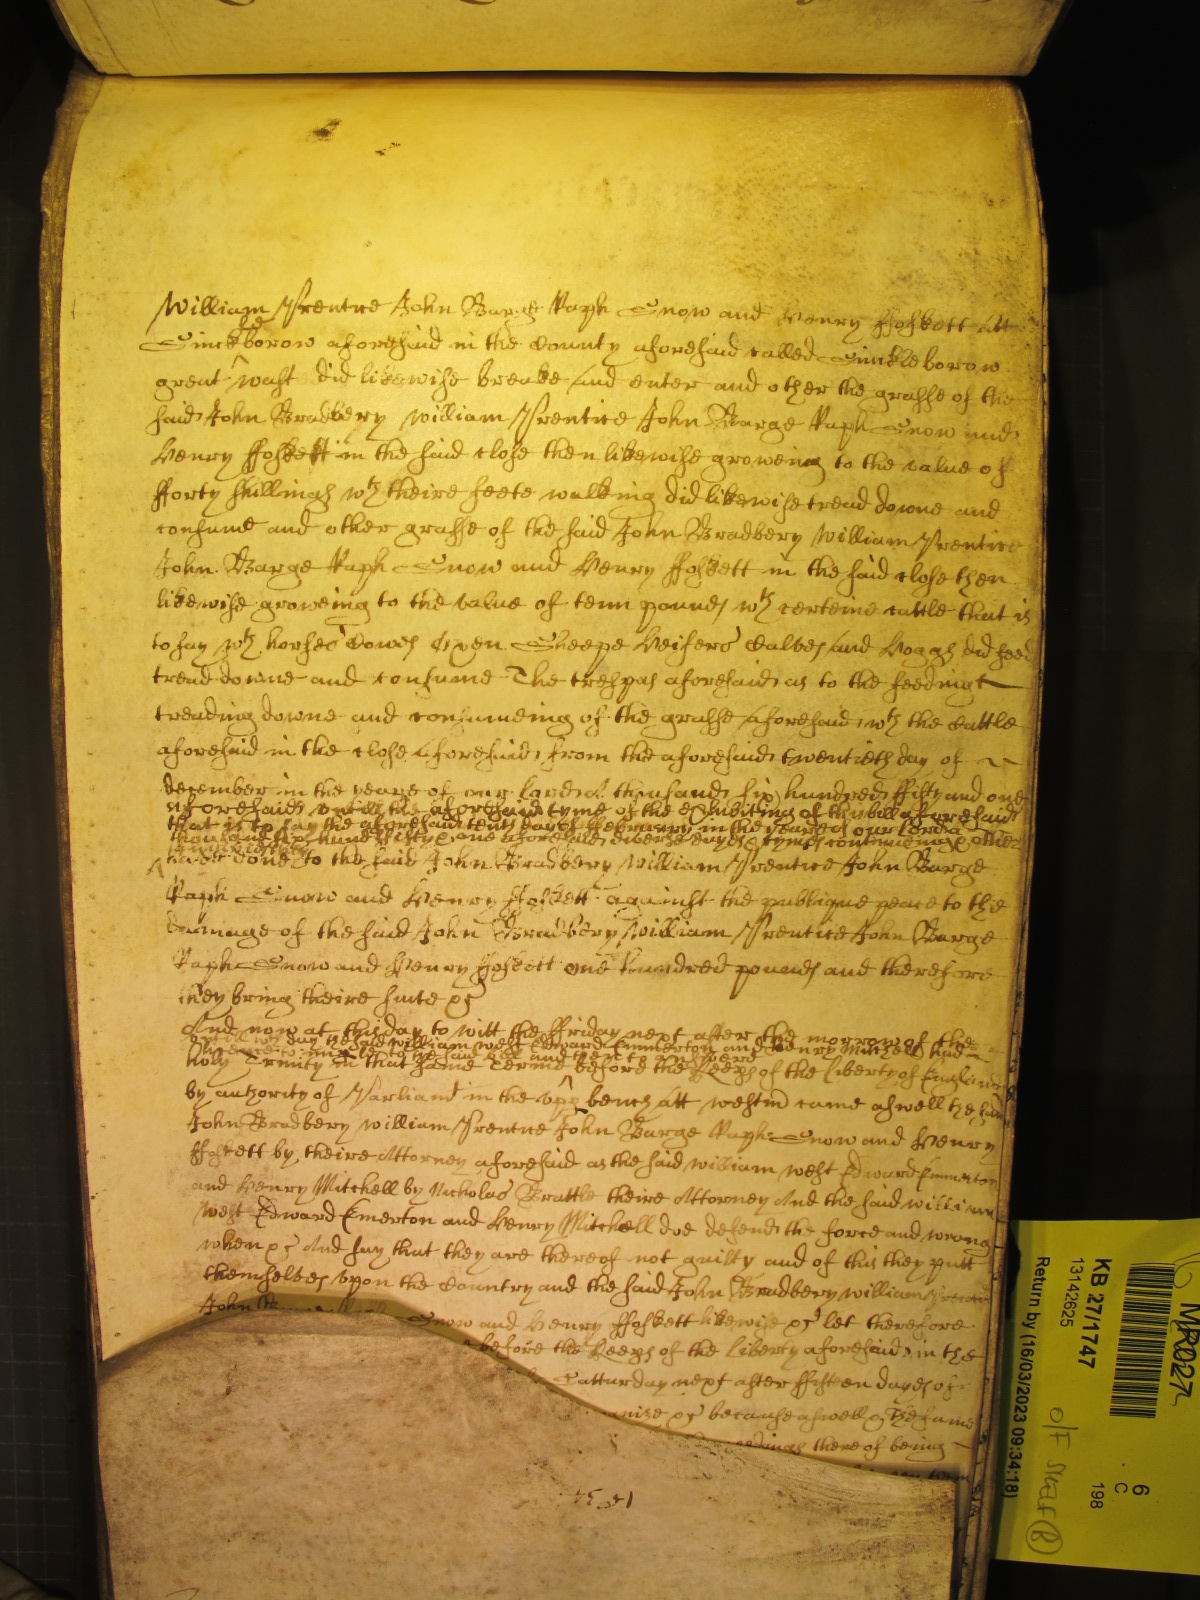 William Prentice John Barge Raph Snow and Henry Foskett Att
Sinckleborow aforesaid in the County aforesaid called Sinckleborow
great wast did likewise breake And enter and other the grasse of the
said John Bradbery William Prentice John Barge Raph Snow and
Henry ffoskett in the said close then likewise groweing to the value of
fforty shillings wth theire feete walking did likewise tread downe and
consume and other grasse of the said John Bradbery William Prentice
John Barge Raph Snow and Henry ffoskett in the said close then
likewise groweing to the value of tenn pounds wth certeine cattle that is
to say wth horses Cowes Oxen Sheepe Heifers Calves And Hoggs did feed
tread downe and consume The trespas aforesaid as to the feeding
treading downe and consumeing of the grasse Aforesaid wth the Cattle
aforesaid in the close Aforesaid from the aforesaid twentieth day of
december in the yeare of our lord A thousand six hundred ffifty and one
aforesaid untill the aforesaid tyme of the exhibiting of the bill aforesaid
that is to say the aforesaid tenth day of ffebruary in the yeare of our Lord A
thousand six hundred fifty & one aforesaid diverse dayes & tymes continueing & other
have done to the said John Bradbery William Prentice John Barge
Raph Snow and Henry ffoskett against the publique peace to the
damage of the said John Bradbery William Prentice John Barge
Raph Snow and Henry ffoskett one hundred pounds and therefore
they bring theire suite &c
And now at this day to witt the ffriday next after the morrow of the
day the said William West Edward Emmerton and Henry Mitchell had
to the said bill and then to answere
holy Trinity in that same Terme before the Keeps of the Liberty of England
by authority of Parliamt in the upp bench att westm came aswell the said
John Bradbery William Prentice John Barge Raph Snow and Henry
ffoskett by theire Attorney aforesaid as the said William West Edward Emmerton
and Henry Mitchell by Nicholas Brattle theire Attorney And the said William
West Edward Emerton and Henry Mitchell doe defend the force and wrong
when &c And say that they are thereof not guilty and of this they putt
themselves upon the Country and the said John Bradbery William Prentice
John Snow and Henry ffoskett likewise &c let therefore
before the Keeps of the Liberty aforesaid in the
Satturday next after ffifteen dayes of
because aswell &c the same
thereof being
KB 27/1747
13142625
Return by (16/03/2023 09:34:18)
6
C
198
MR027